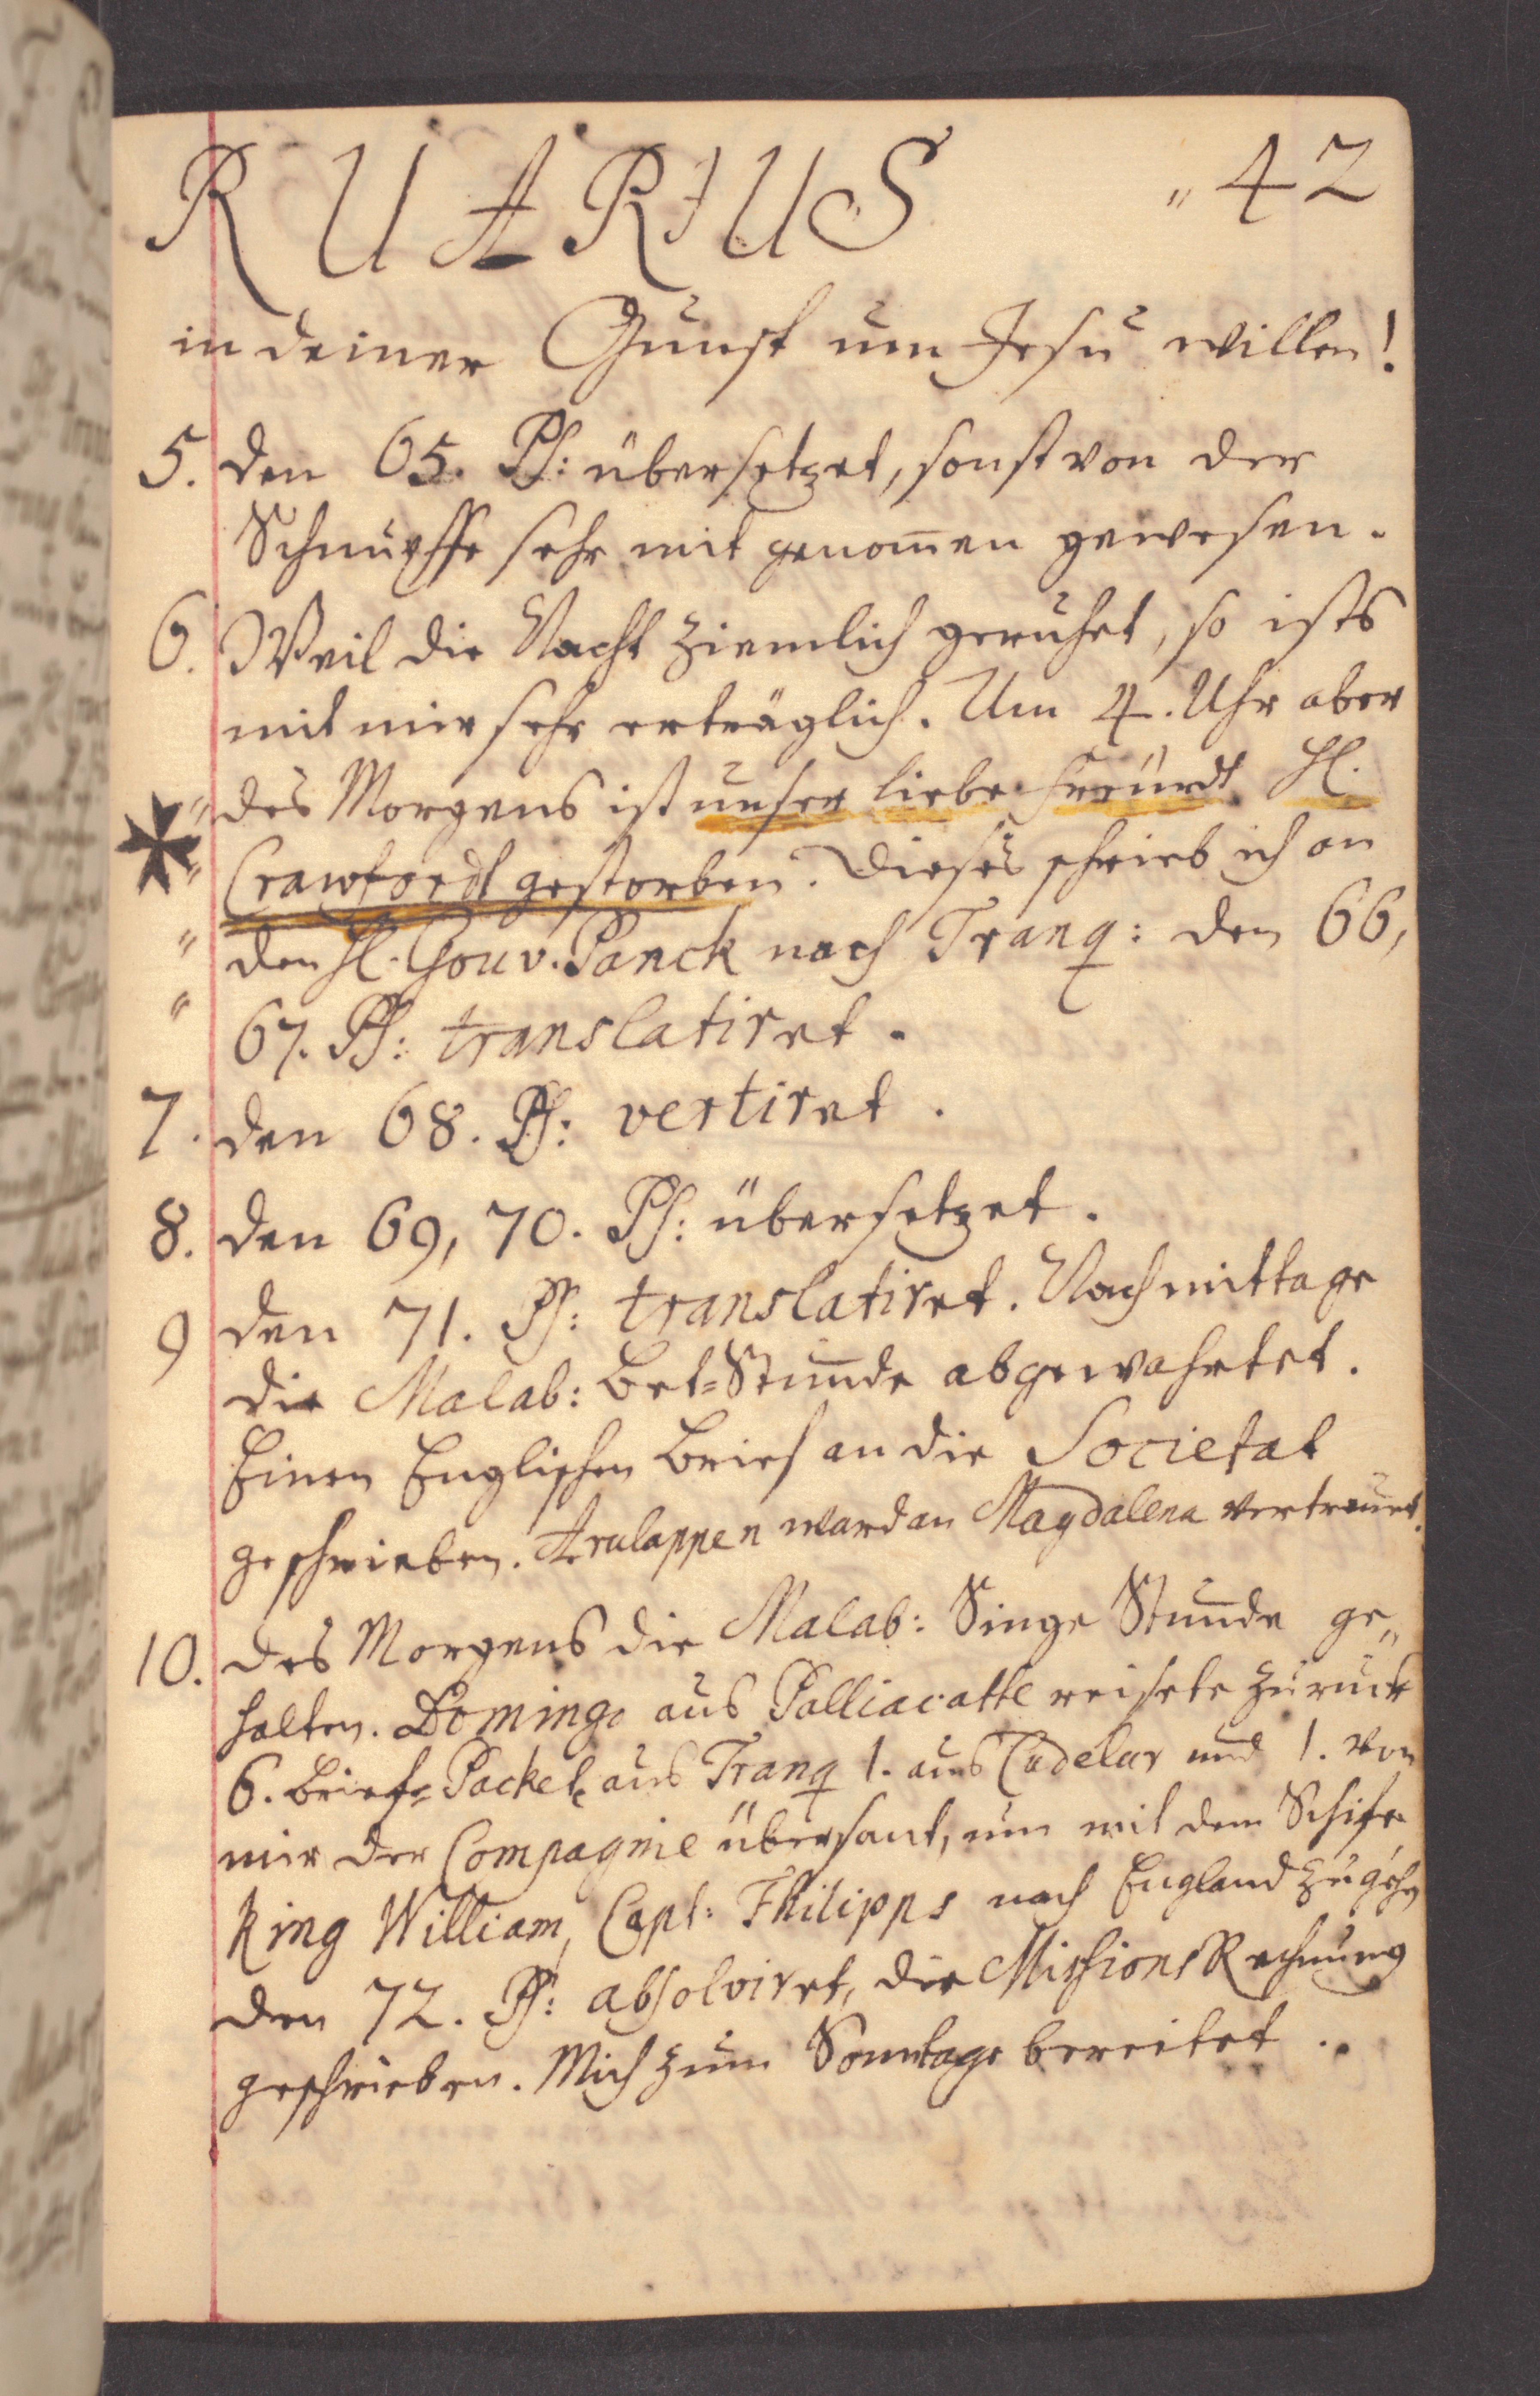 RUARIUS „42
in deiner Gunst um Jesu willen!
5. den 65. Ps: übersetzet, sonst von der
Schnuppe sehr mit genom̄en gewesen.
6. Weil die Nacht ziemlich geruhet, so ists
mit mir sehr erträglich. Um 4. Uhr aber
„ des Morgens ist unser liebe Freundt H.
„ Crawfordt gestorben. Dieses schrieb ich an
„ den H. Gouv. Panck nach Tranq: den 66,
„ 67. Ps: translatiret.
7. den 68. Ps: vertiret.
8. den 69, 70. Ps: übersetzet.
9 den 71. Ps: translatiret. Nachmittage
die Malab: Bet=Stunde abgewahrtet.
Einen Englischen Brief an die Societat
geschrieben. Arulappen ward an Magdalena vertrauet.
10. des Morgens die Malab: Singe Stunde ge„
halten. Domingo aus Palliacatte reisete zurück
6. Brief= Packete aus Tranq 1. aus Cudelur und 1. von
mir der Compagnie übersant, um mit dem Schife
King William, Capt: Philipps nach England zu gehn
den 72. Ps: absolviret, die Missions Rechnung
geschrieben. Mich zum Sonntage bereitet..